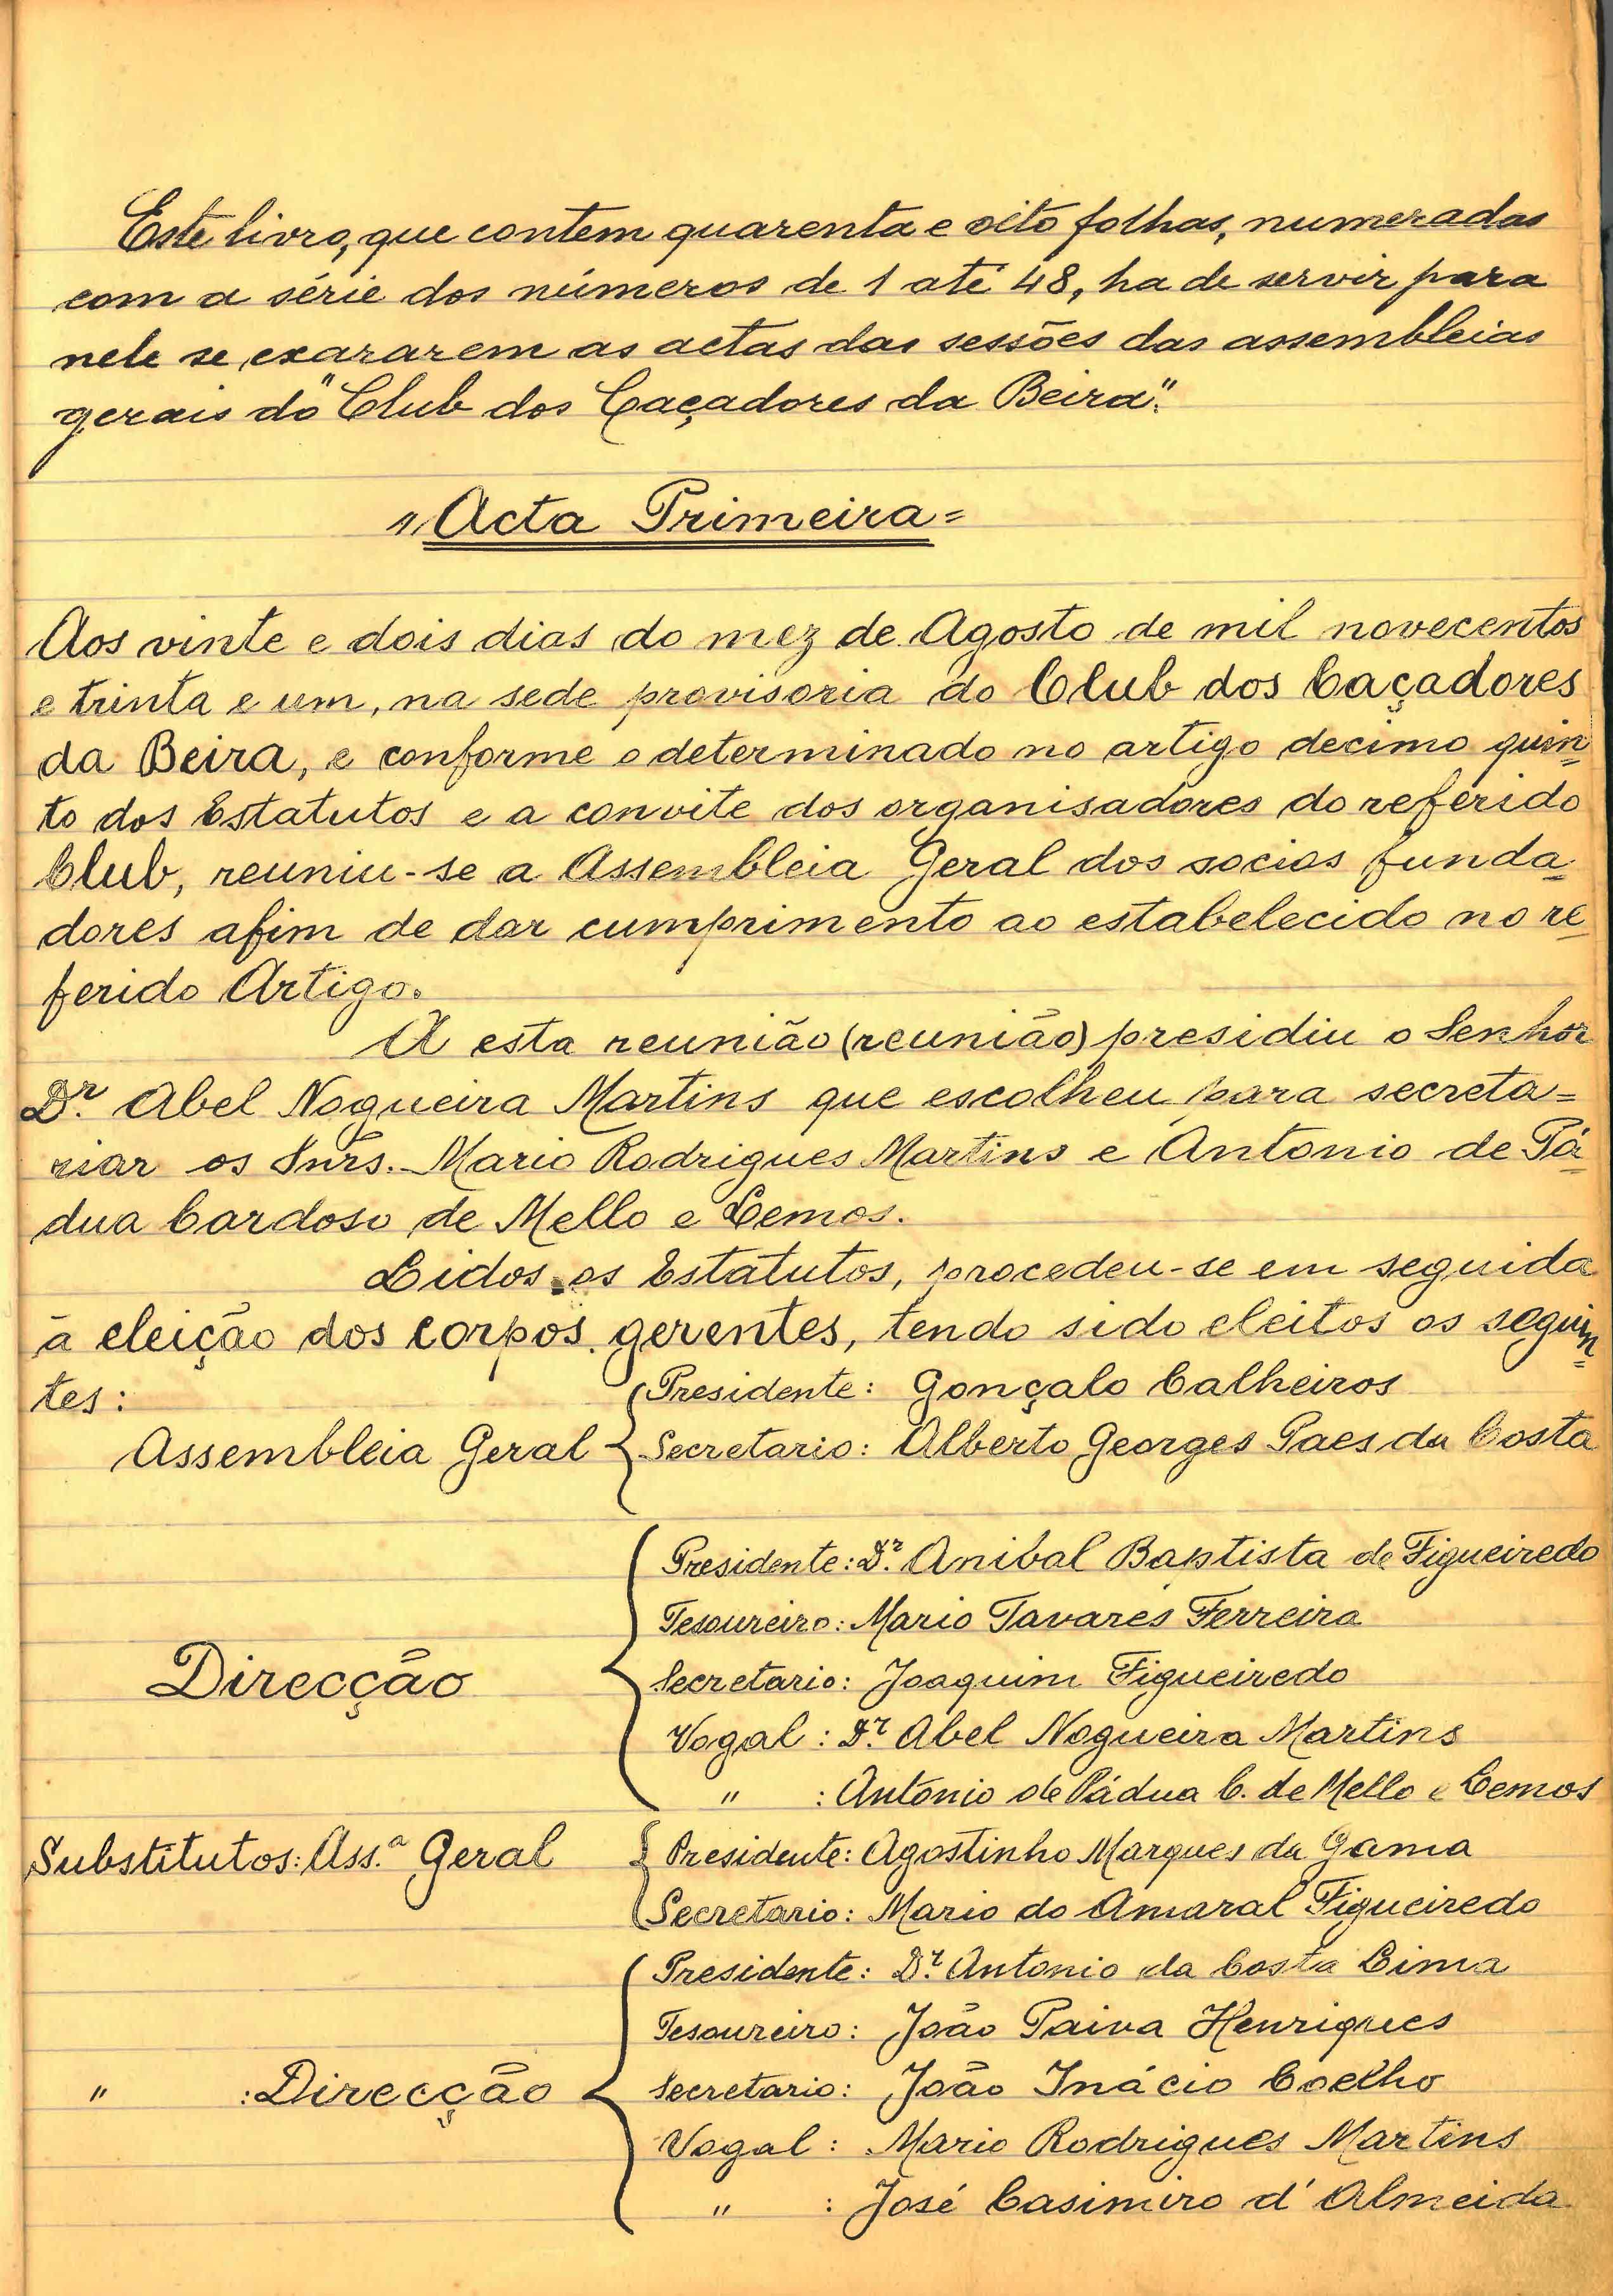 Este livro, que contem quarenta e oito folhas, numeradas
com a série dos números de 1 até 48, ha de servir para
nele se exararem as actas das sessões das assembleias
gerais do "Club dos Caçadores da Beira".
"Acta Primeira=
Aos vinte e dois dias do mez de Agosto de mil novecentos
e trinta e um, na sede provisoria do Club dos Caçadores
da Beira, e conforme o determinado no artigo decimo quin=
to dos Estatutos e a convite dos organisadores do referido
Club, reuniu-se a Assembleia Geral dos socios funda=
dores afim de dar cumprimento ao estabelecido no re=
ferido Artigo.
A esta reunião (reunião) presidiu o Senhor
Dr. Abel Nogueira Martins que escolheu para secreta=
riar os Snrs. Mario Rodrigues Martins e Antonio de Pá=
dua Cardoso de Mello e Lemos.
Lidos os Estatutos, procedeu-se em seguida
à eleição dos corpos gerentes, tendo sido eleitos os seguin=
tes:
Presidente: Gonçalo Calheiros
Assembleia Geral { Secretario: Alberto Georges Paes da Costa
Presidente: Dr. Anibal Baptista de Figueiredo
Tesoureiro: Mario Tavares Ferreira
Direcção { Secretario: Joaquim Figueiredo
Vogal: Dr. Abel Nogueira Martins
" : Antonio de Pádua C. de Mello e Lemos
Substitutos: Ass.a Geral { Presidente: Agostinho Marques da Gama
Secretario: Mario do Amaral Figueiredo
Presidente: Dr. Antonio da Costa Lima
Tesoureiro: João Paiva Henriques
" : Direcção { Secretario: João Inácio Coelho
Vogal: Mario Rodrigues Martins
" : José Casimiro d'Almeida